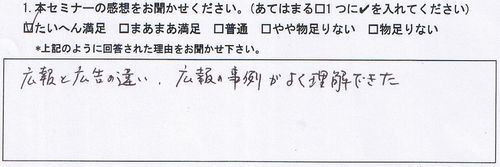 1. 本セミナーの感想をお聞かせください。(あてはまる□1つに✔を入れてください)
☑たいへん満足 □まあまあ満足 □普通 □やや物足りない □物足りない
*上記のように回答された理由をお聞かせ下さい。
広報と広告の違い、広報の事例がよく理解できた